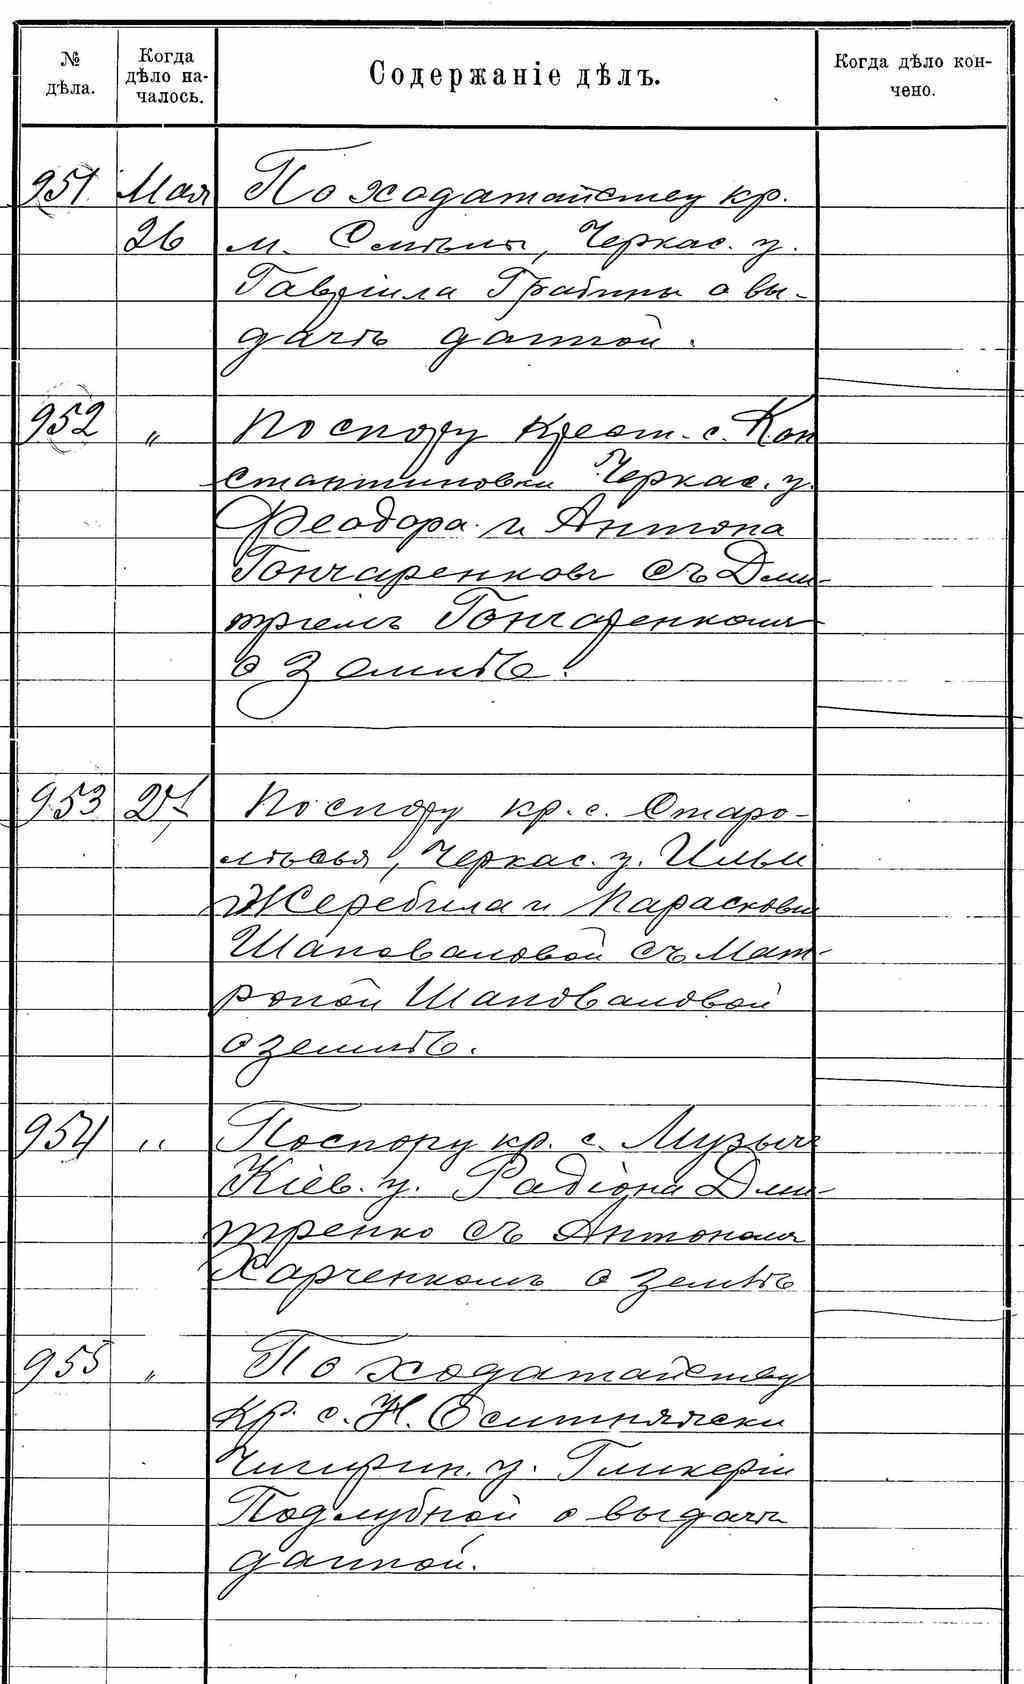 № дѣла.
Когда дѣло на-
чалось.
Содержаніе дѣлъ.
Когда дѣло кон-
чено.
951 Мая По ходатайству кр.
26 м. Смѣлы, Черкас. у.
Гавріила Грабины о вы-
дачѣ данной.
952 „ По спору крест. с. Кон
стантиновки Черкас. у.
Феодора и Антона
Гончаренковъ съ Дми-
тріемъ Гончаренкомъ
о землѣ.
953 27 По спору кр. с. Старо-
лѣсья, Черкас. у. Ильи
Жеребила и Парасковіи
Шаповаловой съ Мат-
роной Шаповаловой
о землѣ.
954 „ По спору кр. с. Музычи
Кіев. у. Радіона Дми-
тренко съ Антономъ
Харченкомъ о землѣ
955 „ По ходатайству
кр. с. Н. Оситняжски
Чигирин. у. Гликеріи
Подлубной о выдачѣ
данной.